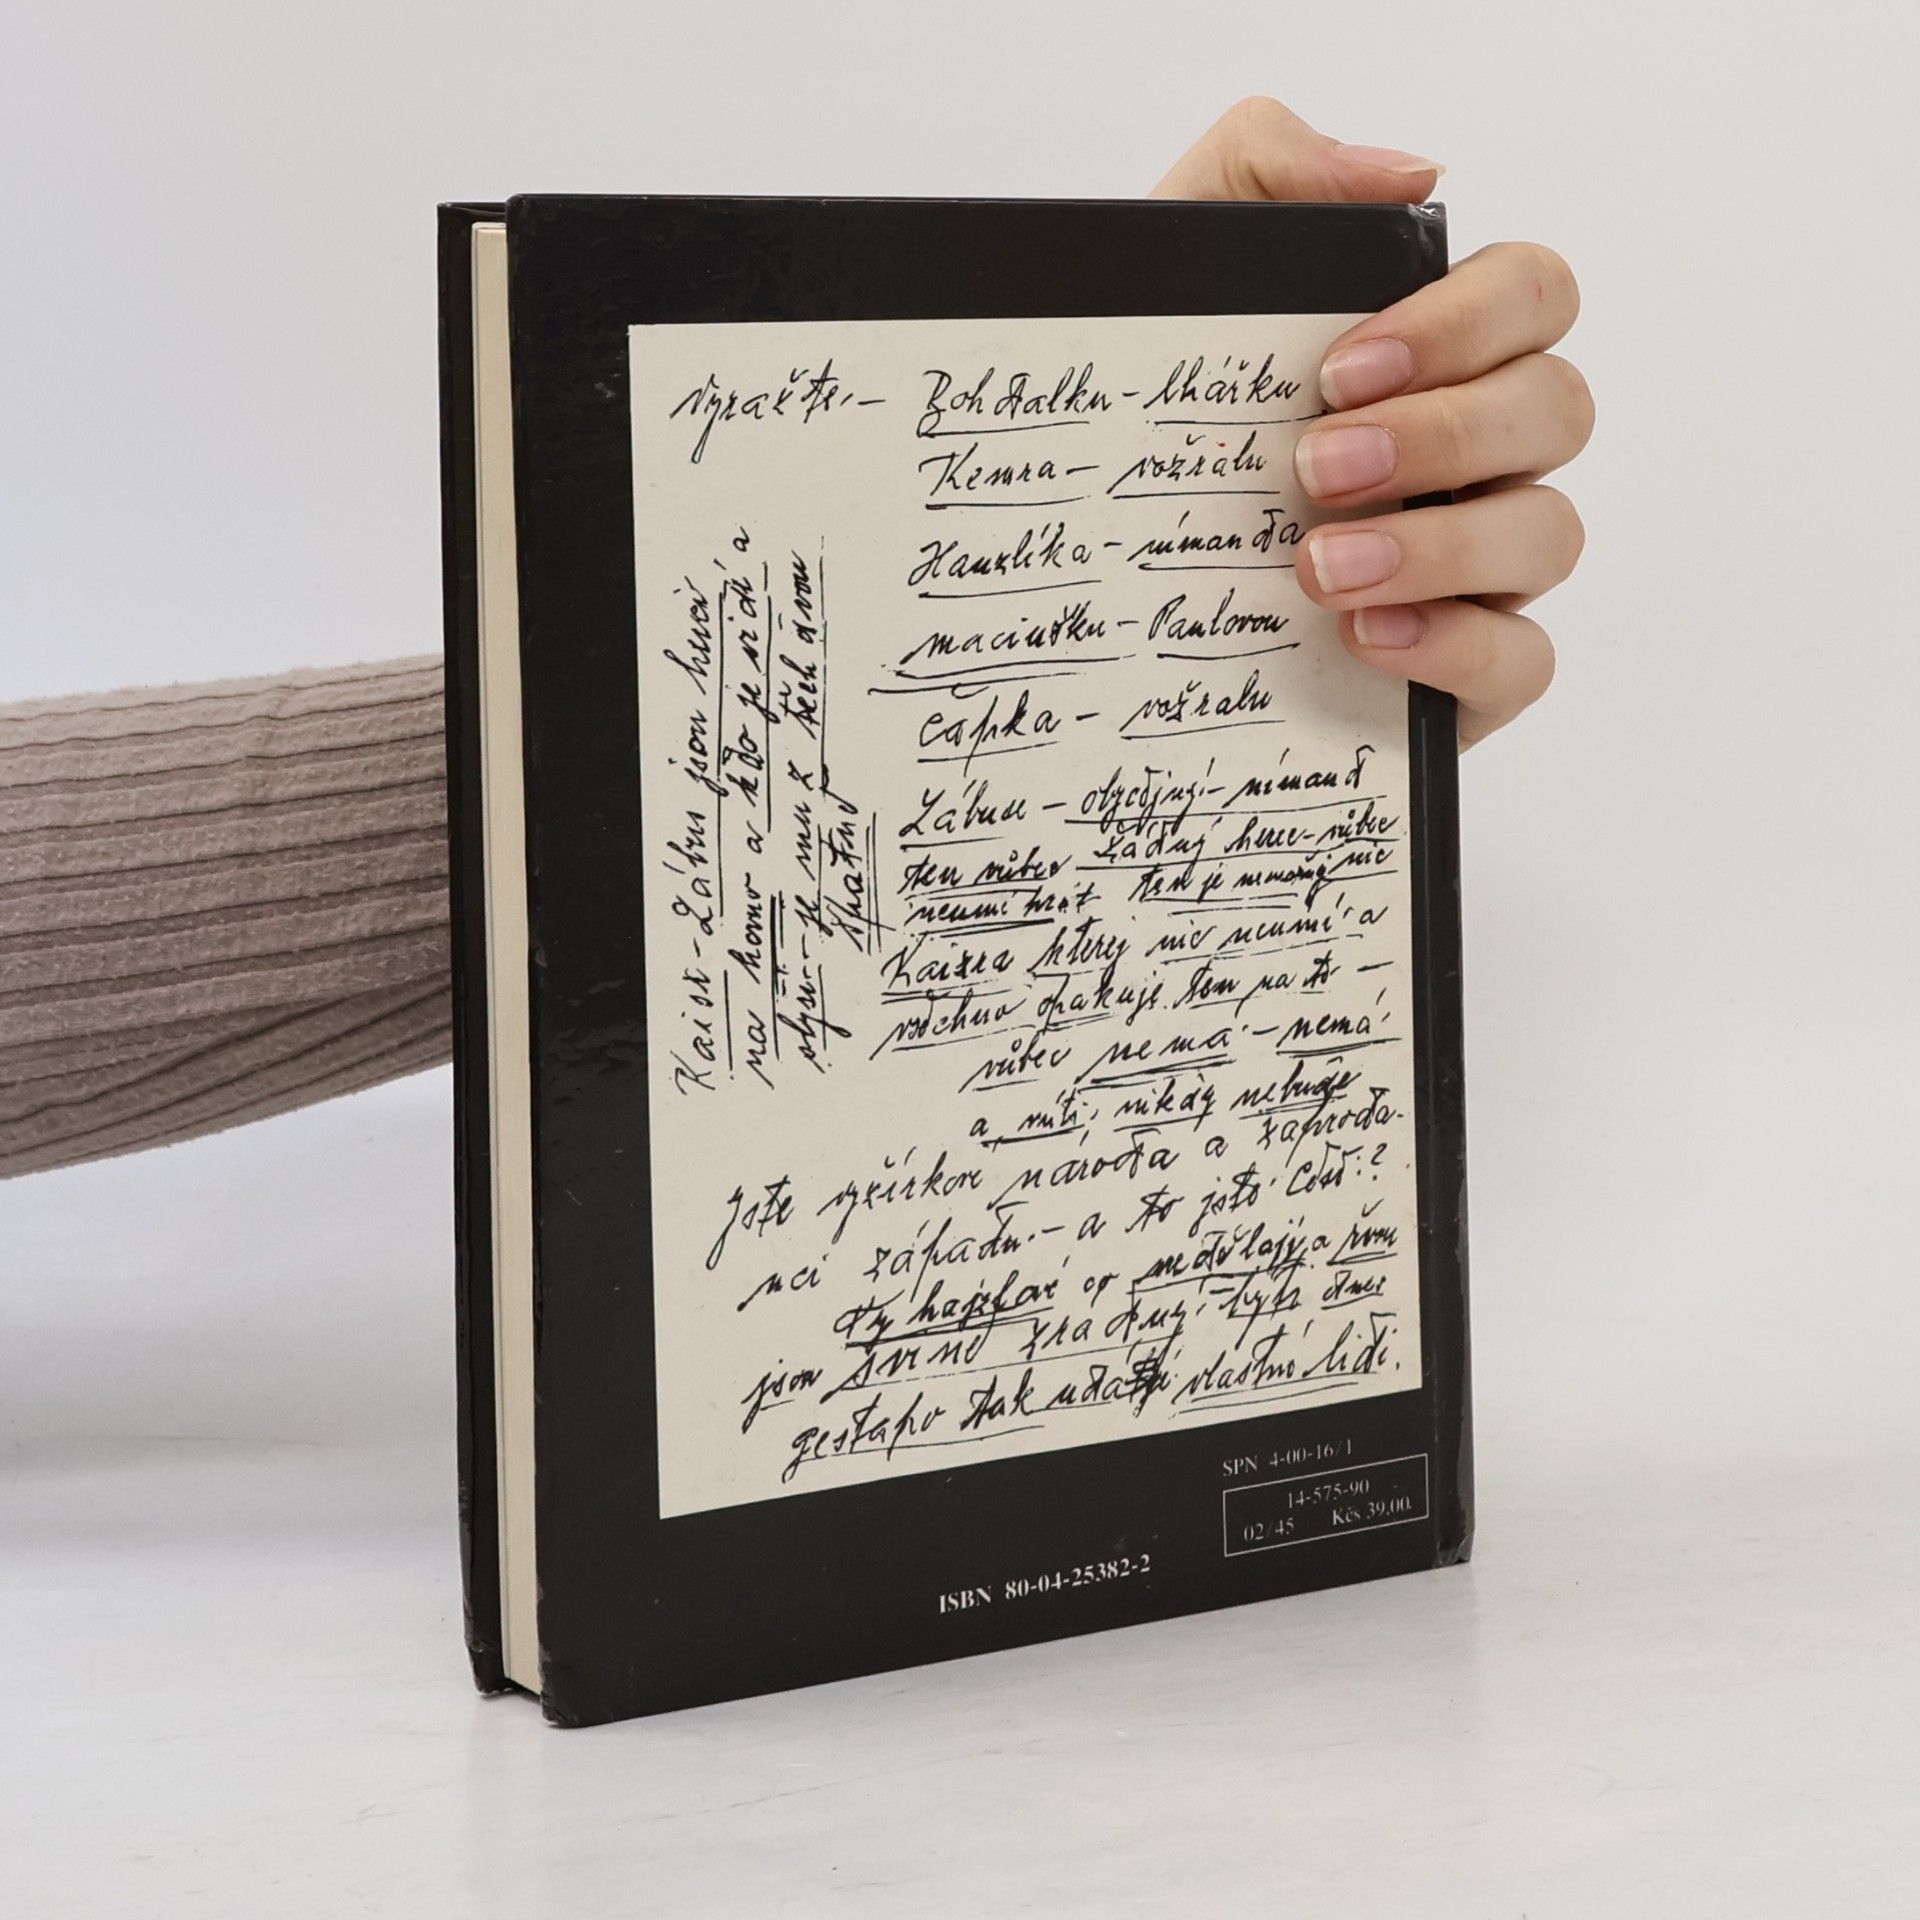 Vyražte. — Bohdalku - lhářku
Kemra - vožralu
Hanzlíka - nímanda
maciušku - Pavlovou
Čápka - vožralu
Zábuse - obyčdjnyj - nímand
ten vůbec žádný herec - vůbec
neumí hrát ten je nemožnyj nic
Kaizra kterej nic neumí a
všechno opakuje. tem na to —
vůbec nemá - nemá
a nikdy nebude
Kaisr - Zábus jsou herci
na hovno a kdo je vidí a
slyší - je mu z těch dvou
špatně
Jste vyžírkove národa a zaproda-
nci západu. - a to jste
Ty hajzlové co nedělají a řvou
jsou svině zrádný - být dnes
gestapo tak udáte vlastní lidi.
SPN 4-00-16/1
14-575-90
02/45 Kčs 39,00
ISBN 80-04-25382-2